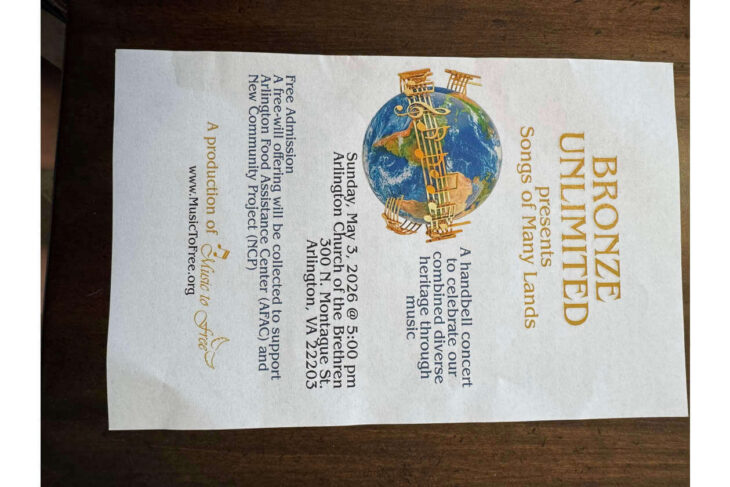 BRONZE
UNLIMITED
presents
Songs of Many Lands
A handbell concert
to celebrate our
combined diverse
heritage through
music
Sunday, May 3, 2026 @ 5:00 pm
Arlington Church of the Brethren
300 N. Montague St.
Arlington, VA 22203
Free Admission
A free-will offering will be collected to support
Arlington Food Assistance Center (AFAC) and
New Community Project (NCP)
A production of Music to Free
www.MusicToFree.org